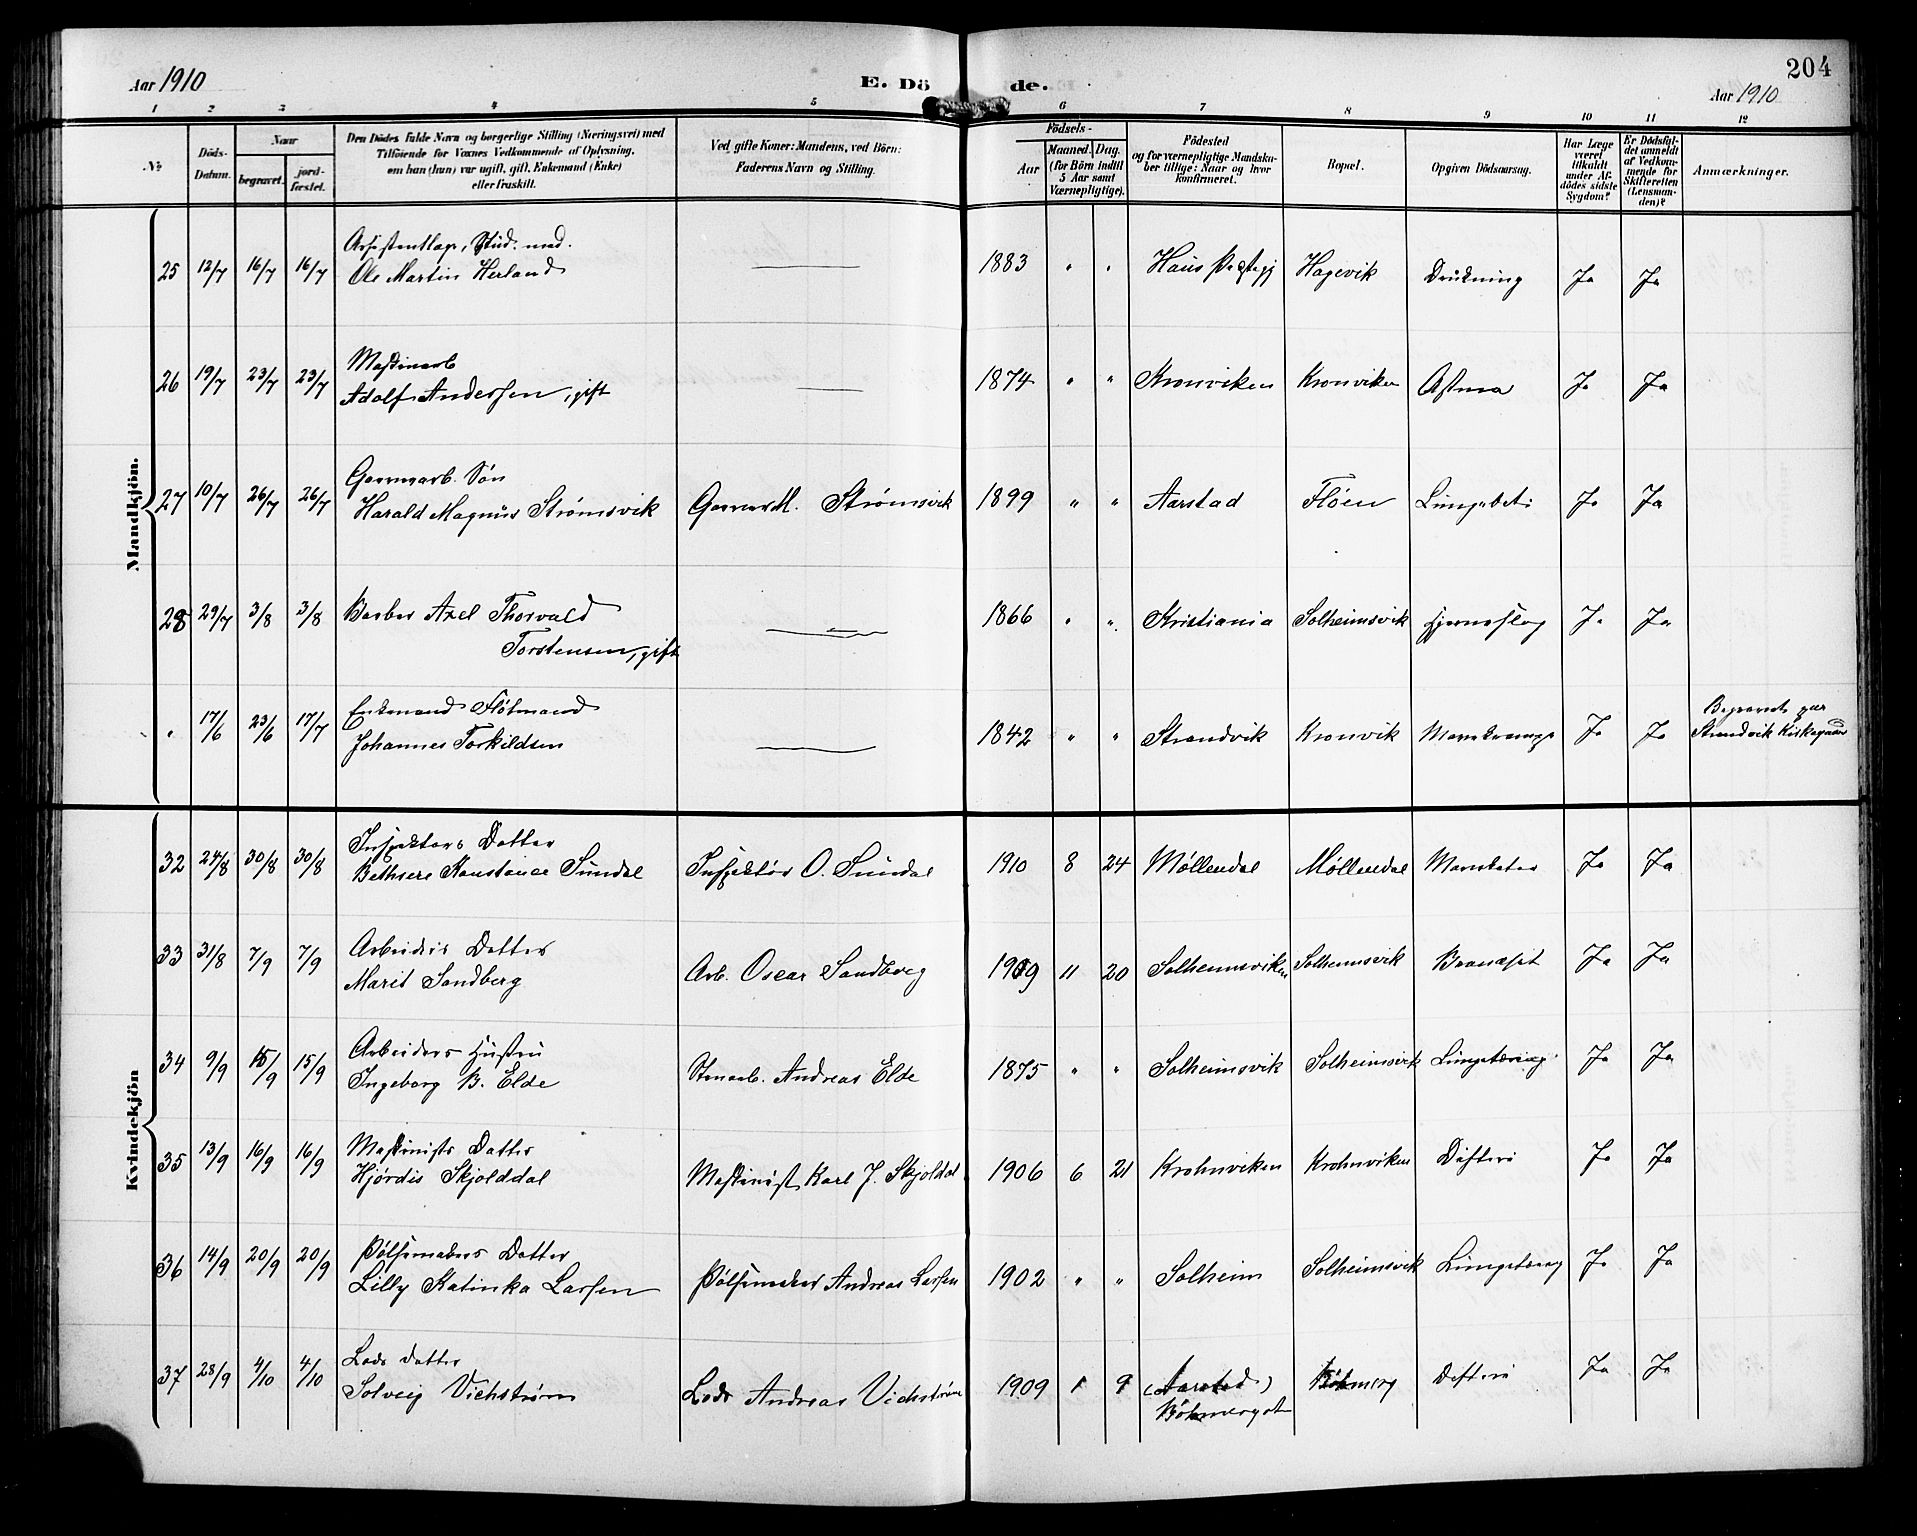 Aar 1910
E. Dö
de.
204
Aar 1910
1 2 3 4 5 6 7 8 9 10 11 12
No
Döds-
Datum.
Naar
begravet.
jord-
fæstet.
Den Dödes fulde Navn og borgerlige Stilling (Næringsvei) med
Tilföiende for Voxnes Vedkommende af Oplysning,
om han (hun) var ugift, gift, Enkemand (Enke)
eller fraskilt.
Ved gifte Koner: Mandens, ved Börn:
Faderens Navn og Stilling.
Födsels-
Aar
Maaned. Dag.
(for Börn indtil
5 Aar samt
Værnepligtige).
Födested
og for værnepligtige Mandska-
ber tillige: Naar og hvor
konfirmeret.
Bopæl.
Opgiven Dödsaarsag.
Har Læge
været
tilkaldt
under Af-
dödes sidste
Sygdom?
Er Dödsfal-
det anmeldt
af Vedkom-
mende for
Skifteretten
(Lensman-
den)?
Anmærkninger.
Mandkjön.
Stud. med.
25 12/7 16/7 16/7 Ole Martin Herland 1883 " " Haus Hagevik Drukning Ja Ja
26 19/7 23/7 23/7 Adolf Andersen, gift 1874 " " Kronviken Kronviken Astma Ja Ja
Søn
27 10/7 26/7 26/7 Harald Magnus Strømsvik Strømsvik 1899 " " Aarstad Fløen Ja Ja
28 29/7 3/8 3/8 Barber Axel Thorvald 1866 " " Kristiania Solheimsvik Hjerneslag Ja Ja
Torstensen, gift
" 17/6 23/6 17/7 Enkemand Flötmand
Johannes Torkildsen 1842 " " Strandvik Kronvik Ja Ja
Strandvik Kirkegaard
Kvindekjön
Inspektørs Datter
32 24/8 30/8 30/8 Konstance Sundal Inspektør O. Sundal 1910 8 24 Møllendal Møllendal Ja Ja
Arbeiders Datter
33 31/8 7/9 7/9 Marit Sandberg Arb. Oscar Sandberg 1909 11 20 Solheimsviken Solheimsvik Ja Ja
Arbeiders Hustru
34 9/9 15/9 15/9 Ingeborg B. Elde Stenarb. Andreas Elde 1875 " " Solheimsvik Solheimsvik Lungetæring Ja Ja
Maskinists Datter
35 13/9 16/9 16/9 Hjørdis Skjolddal Maskinist Karl J. Skjoldal 1906 6 21 Krohnviken Krohnviken Difteri Ja Ja
Pølsemakers Datter
36 14/9 20/9 20/9 Lilly Katinka Larsen Pølsemaker Andreas Larsen 1902 " " Solheim Solheimsvik Lungetæring Ja Ja
Lods datter
37 28/9 4/10 4/10 Solveig Vichstrøm Lods Andreas Vichstrøm 1909 1 9 (Aarstad) Difteri Ja Ja